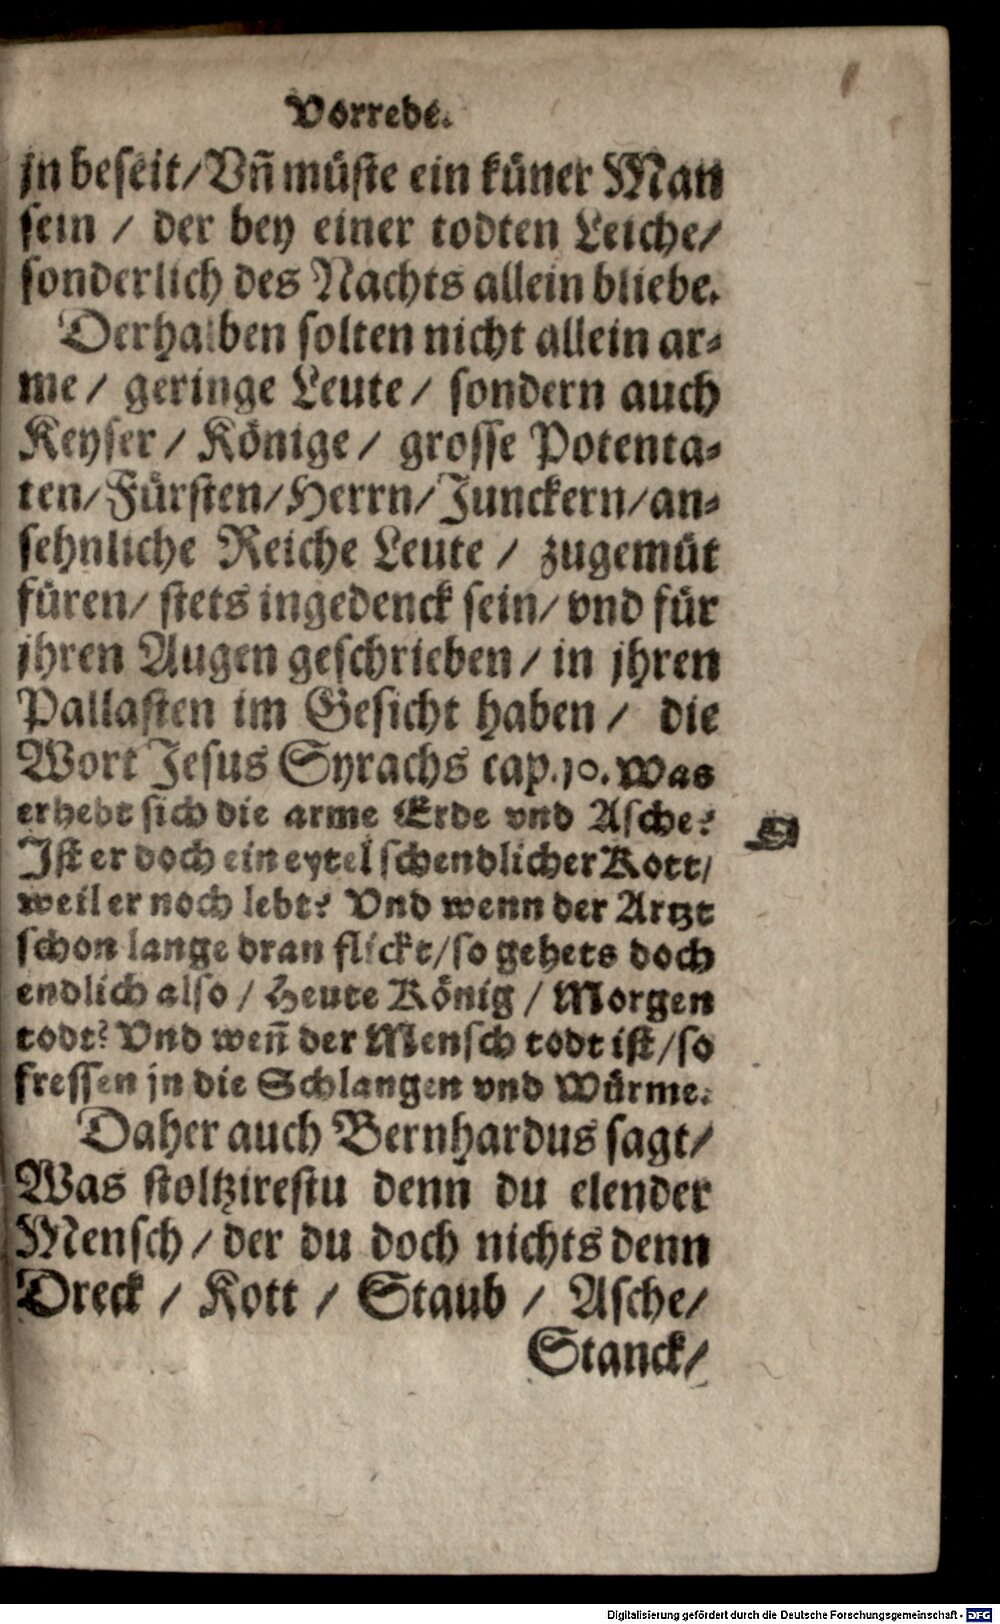 Vorrede.
jn beseit/Vn̄ müste ein küner Man
sein / der bey einer todten Leiche/
sonderlich des Nachts allein bliebe.
Derhalben solten nicht allein ar⸗
me / geringe Leute / sondern auch
Keyser / Könige / grosse Potenta⸗
ten/Fürsten/Herrn/Junckern/an⸗
sehnliche Reiche Leute / zugemüt
füren/ stets ingedenck sein/ vnd für
jhren Augen geschrieben / in jhren
Pallasten im Gesicht haben / die
Wort Jesus Syrachs cap.10. Was
erhebt sich die arme Erde vnd Asche?
Ist er doch ein eytel schendlicher Kott/
weil er noch lebt? Vnd wenn der Artzt
schon lange dran flickt/so gehets doch
endlich also / Heute König / Morgen
todt? Vnd wen̄ der Mensch todt ist/so
fressen jn die Schlangen vnd Würme.
Daher auch Bernhardus sagt/
Was stoltzirestu denn du elender
Mensch / der du doch nichts denn
Dreck / Kott / Staub / Asche/
Stanck/
Digitalisierung gefördert durch die Deutsche Forschungsgemeinschaft - DFG